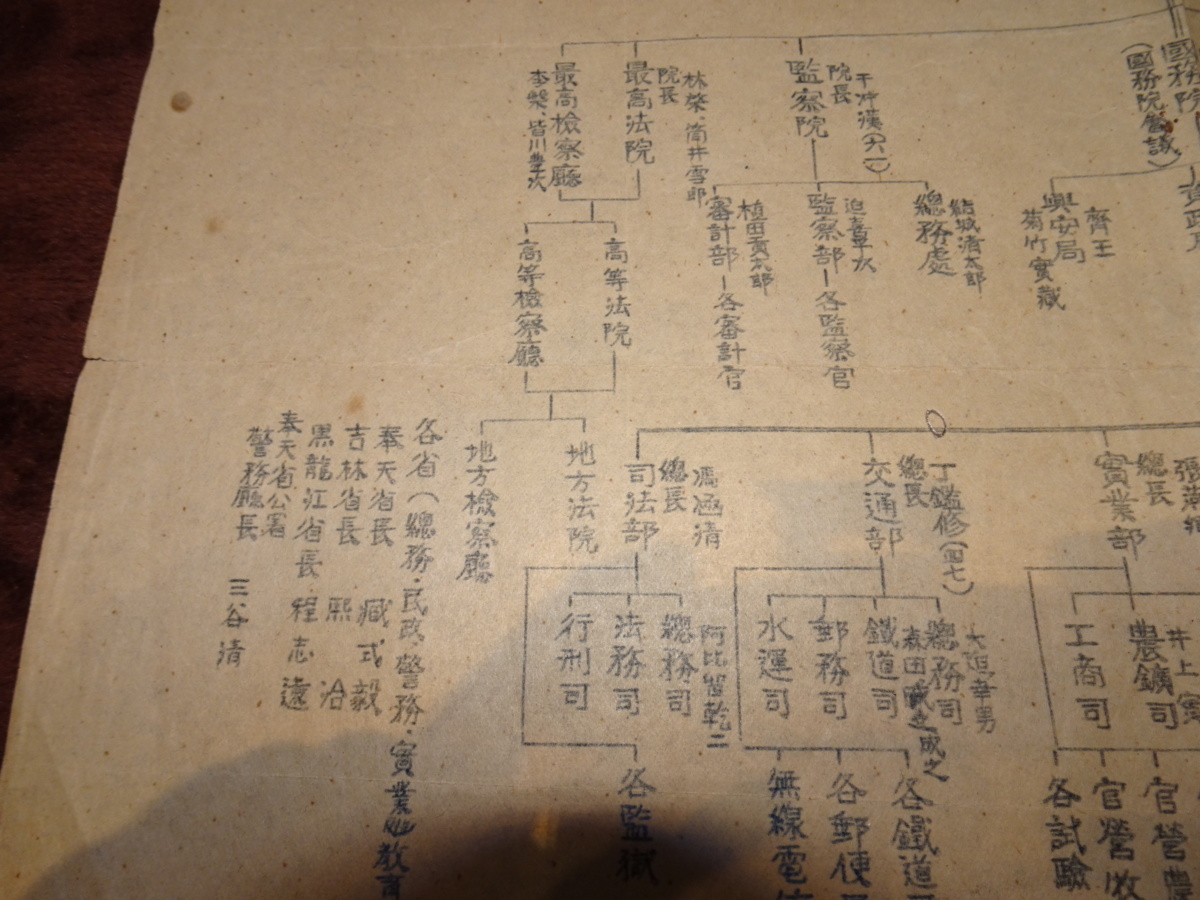 國務院
(國務院會議)
齊王
興安局
菊竹實藏
于冲漢(六一)
院長
監察院
結城清太郎
總務處
迫喜平次
監察部—各監察官
植田貢太郎
審計部—各審計官
林棨、筒井雪郎
院長
最高法院
最高檢察廳
李槃、皆川豊次
高等法院
高等檢察廳
地方法院
地方檢察廳
總長
實業部
井上實
農鑛司
工商司
官營農
官營牧
各試驗
丁鑑修(四七)
總長
交通部
大迫幸男
總務司
森田成之
鐵道司
郵務司
水運司
各鐵道
各郵便
無線電
馮涵清
總長
司法部
阿比留乾二
總務司
法務司
行刑司
各監獄
各省(總務·民政、警務·實業、教育
奉天省長 臧式毅
吉林省長 熙洽
黑龍江省長 程志遠
奉天省公署
警務廳長 三谷清